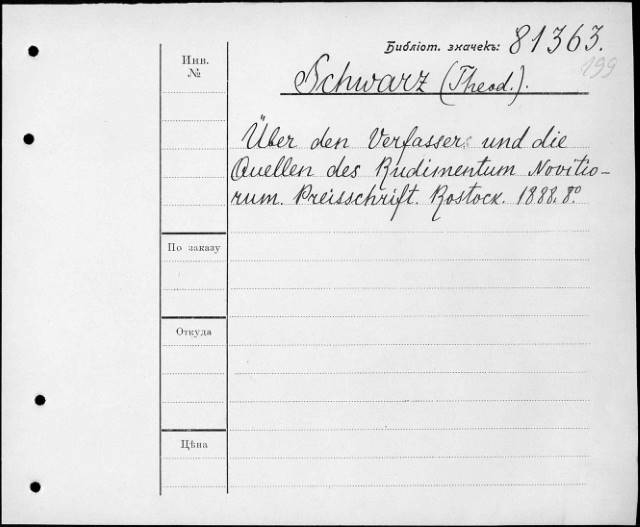 Библіот. значекъ: 81363.
199
Инв.
№
Schwarz (Theod.).
Über den Verfasser und die
Quellen des Rudimentum Novitio-
rum. Preisschrift. Rostock. 1888. 8º
По заказу
Откуда
Цѣна